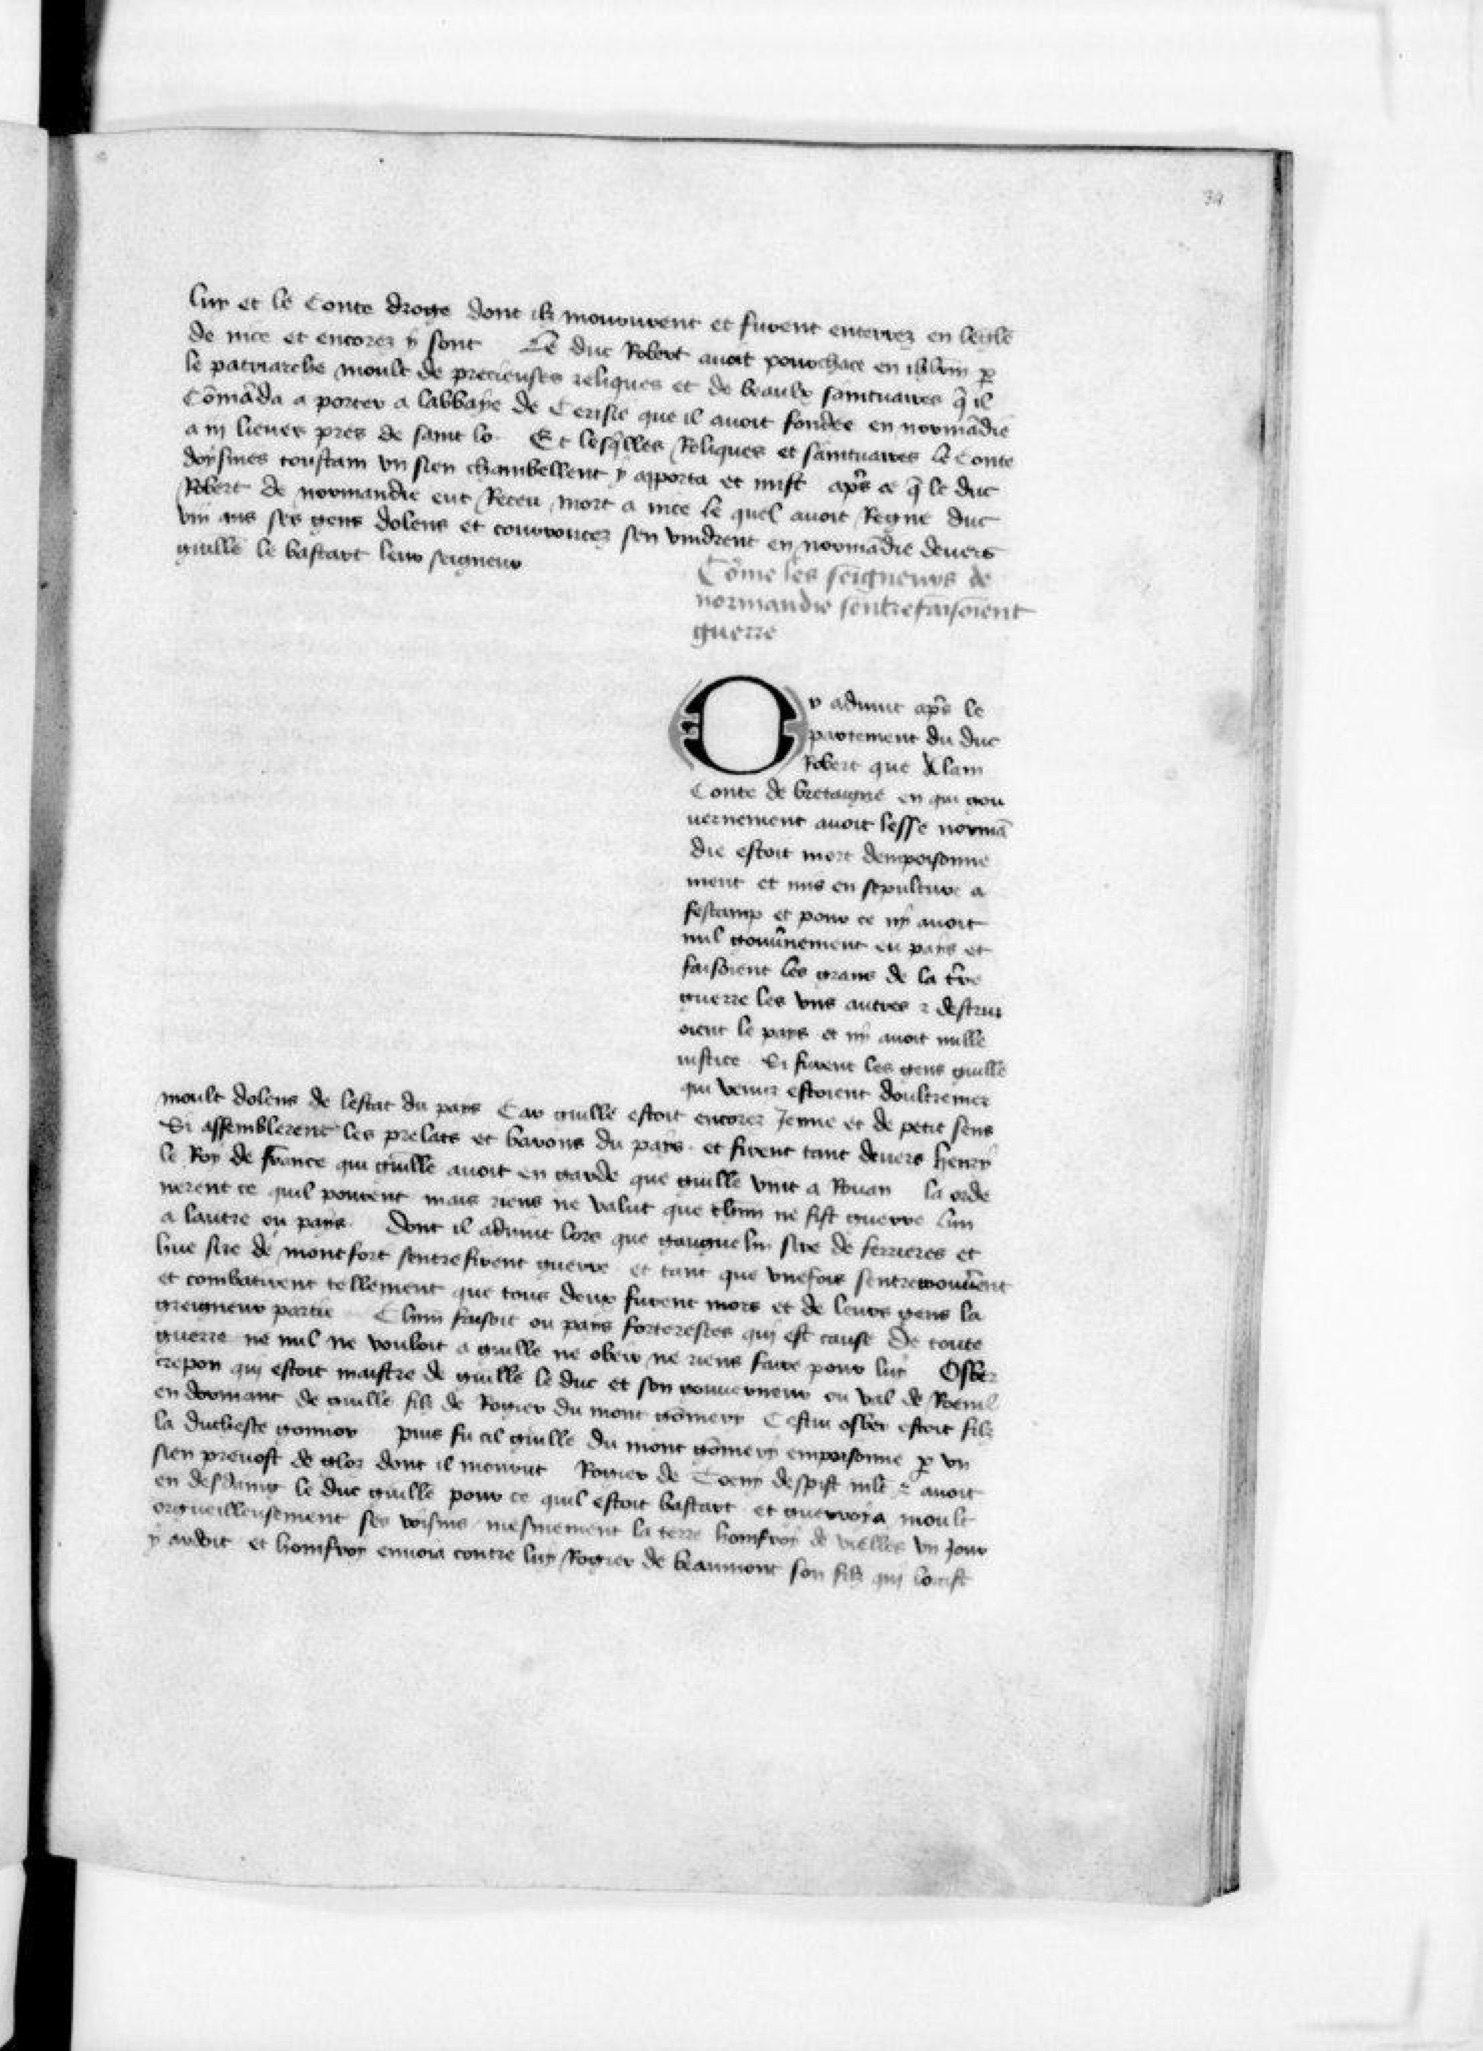 34
luy et le Conte droge dont ilz moururent et furent enterrez en leglē
de nice et encorez y sont Le duc Robert auoit pourchace en ihrlm̄ p̱
le patriarche moult de precieuses reliques et de beaulx saintuaires q̄ il
Cōmāda a porter a labbaye de Cerisie que il auoit fondee en normādie
a iii lieues pres de saint lo Et lesq̄lles Reliques et saintuaires le Conte
doysmes toustam vn sien chambellent y apporta et mist ap̄s ce q̄ le duc
Robert de normandie eut Receu mort a nice le quel auoit Regne duc
viii ans ses gens dolens et courroucez sen vindrent en normādie deuers
guille le bastart leur seigneur
Cōme les seigneurs de
normandie sentrefaisoient
guerre
Or aduint ap̄s le
partement du duc
Robert que Alain
Conte de bretaigne en qui gou
uernement auoit lesse normā
die estoit mort dempoisonne
ment et mis en sepulture a
festamp et pour ce ny auoit
nul gouūnement eu pays et
faisoient les grans de la t̄re
guerre les vns autres ⁊ destrui
oient le pays et ny auoit nulle
iustice Si furent les gens guille
qui venuz estoient doultremer
moult dolens de lestat du pays Car guille estoit encorez Jenne et de petit sens
Si assemblerent les prelats et barons du pays et firent tant deuers henry
le Roy de france qui guille auoit en garde que guille vint a Rouan la orde
nerent ce quil pourent mais riens ne valut que chūn ne fist guerre lun
a lautre ou pays Dont il aduint lors que gauguelin sire de ferrieres et
hue sire de montfort sentrefirent guerre et tant que vnefois sentretrouūent
et combatirent tellement que tous deux furent mors et de leurs gens la
greigneur partie Chūn faisoit ou pays forteresses qui est cause de toute
guerre ne nul ne vouloit a guille ne obeir ne riens faire pour luy Osber
crepon qui estoit maistre de guille le duc et son gouuerneur ou val de Roeuil
en dormant de guille filz de Rogier du mont gōmery Cestui osber estoit filz
la duchesse gonnor puis fu cil guille du mont gōmery empoisonne p̱ vn
sien preuost de glos dont il mourut Rogier de Toeny despist mlt ⁊ auoit
en desdaing le duc guille pour ce quil estoit bastart et guerroya moult
orgueilleusement ses voisins mesmement la terre homfroy de vielles vn Jour
y ardoit et homfroy enuoia contre luy Rogier de beaumont son filz qui locist